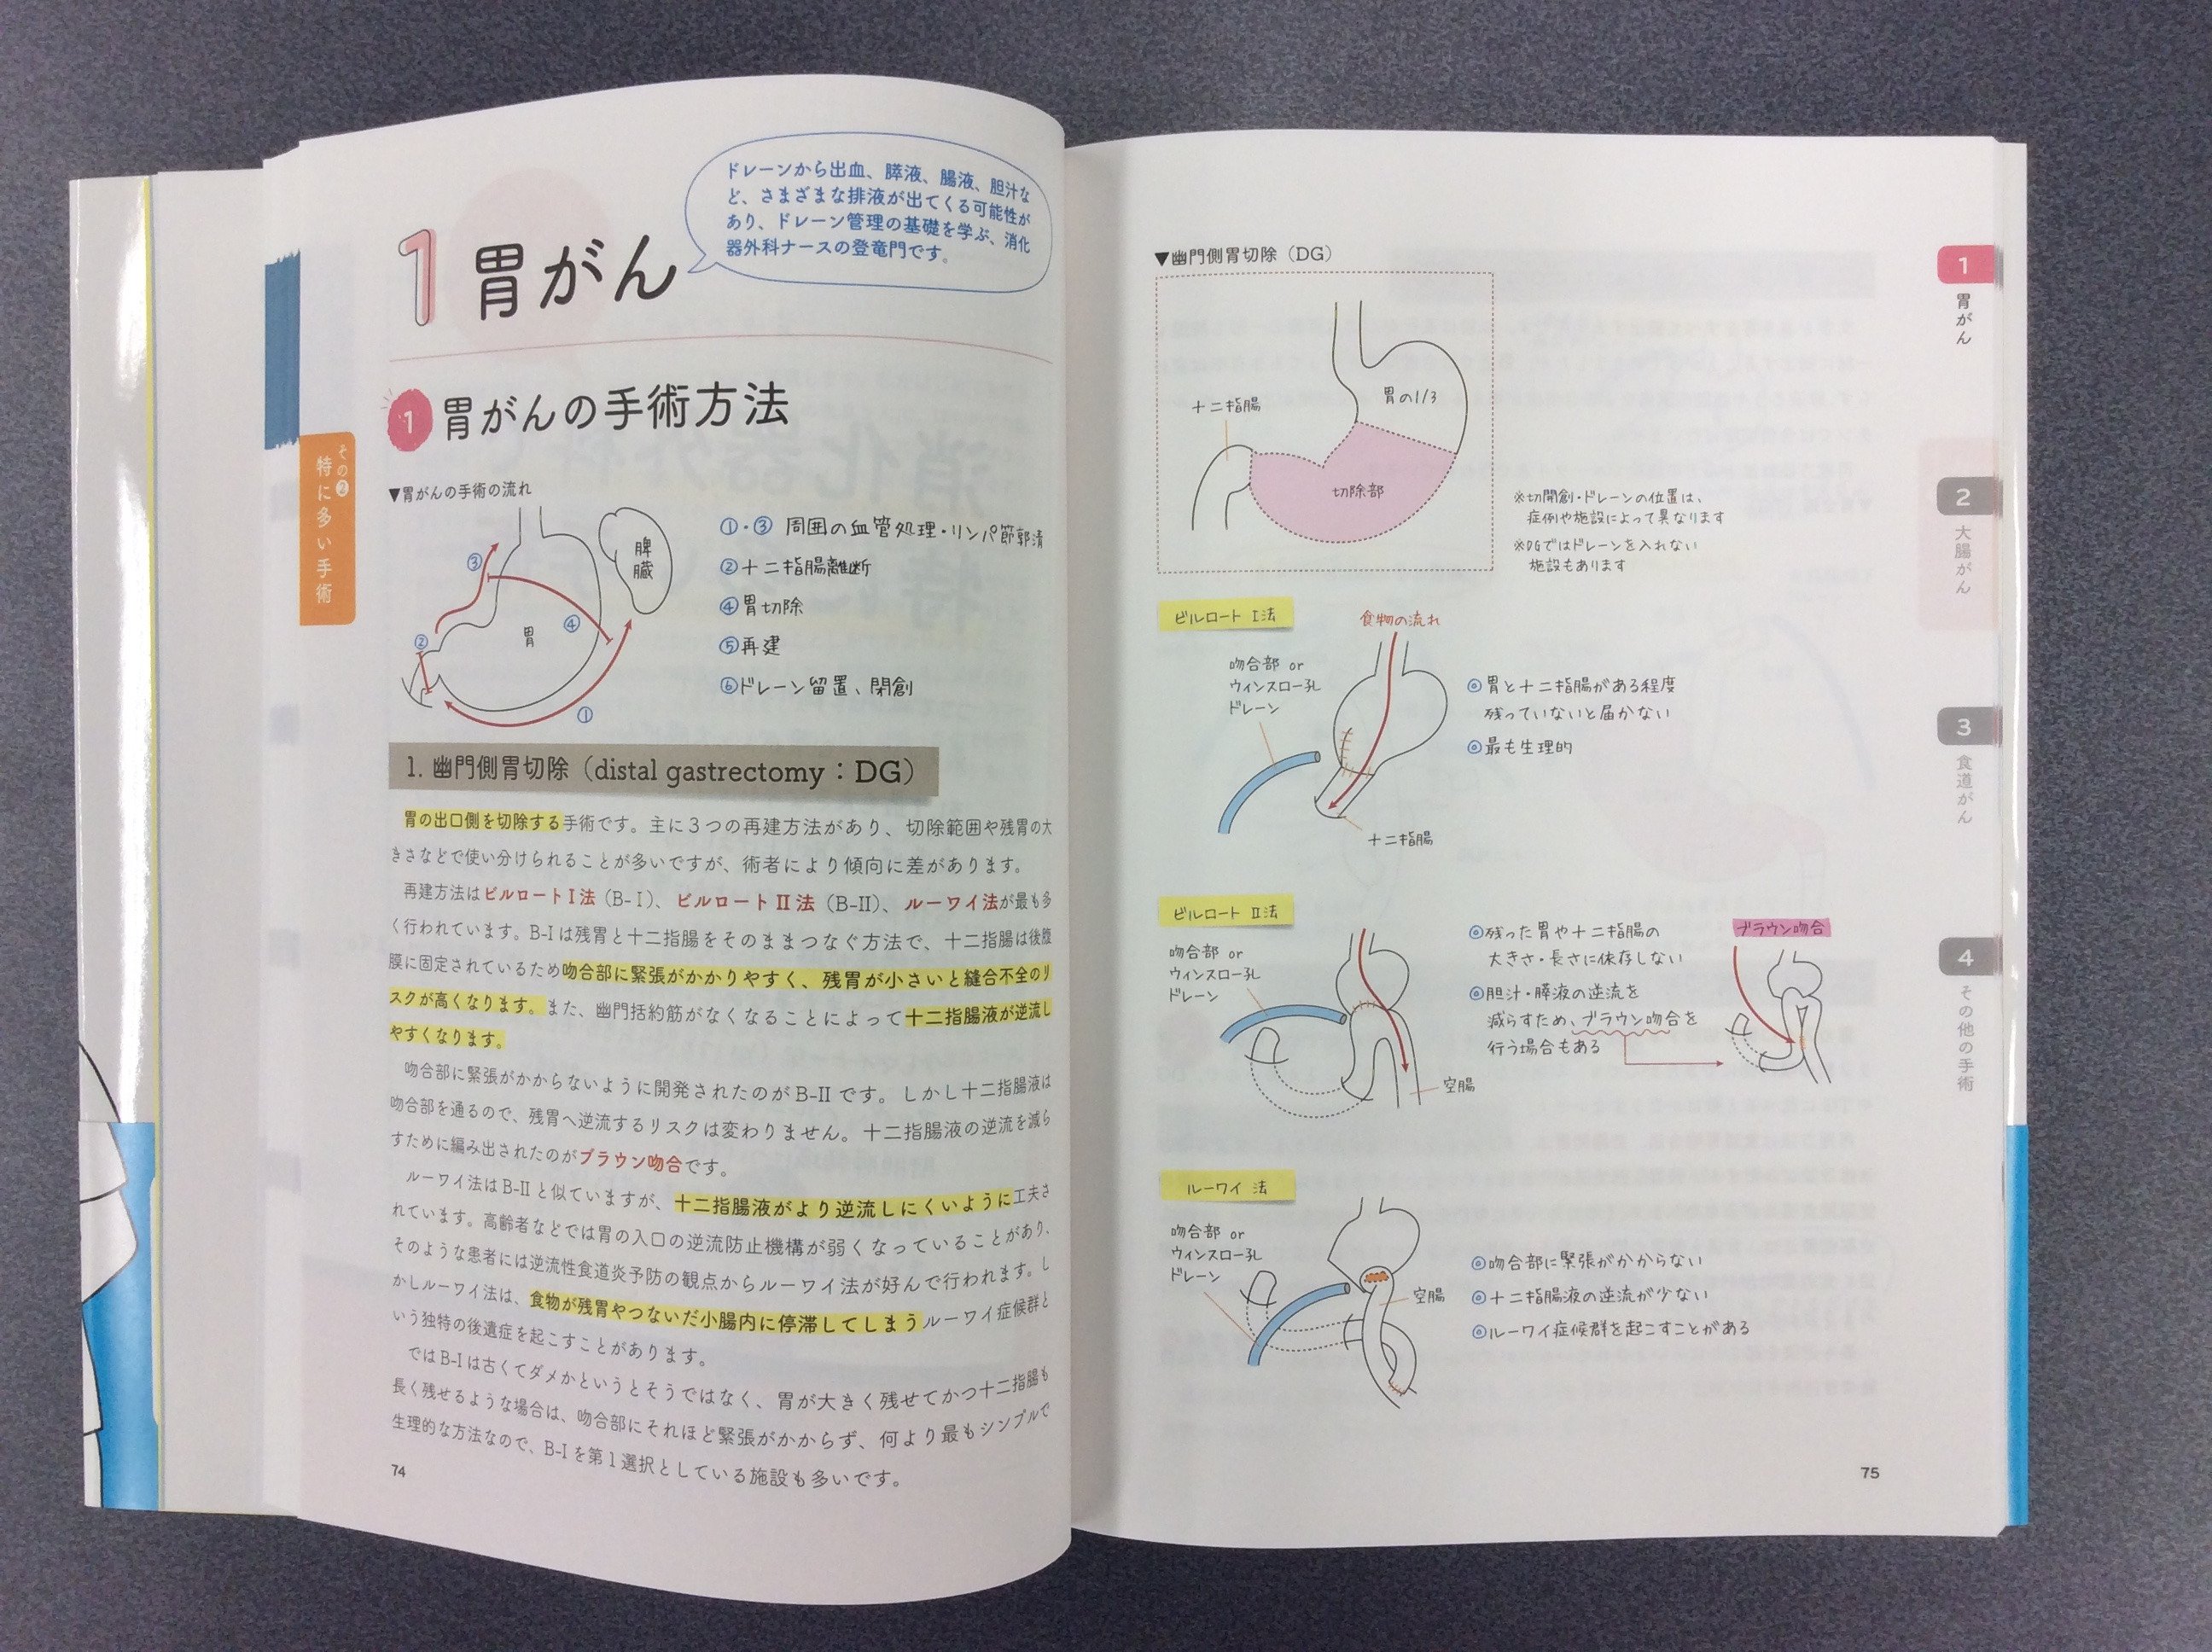 ドレーンから出血、膵液、腸液、胆汁な
ど、さまざまな排液が出てくる可能性が
あり、ドレーン管理の基礎を学ぶ、消化
器外科ナースの登竜門です。
1 胃がん
1 胃がんの手術方法
その2
特に多い手術
▼胃がんの手術の流れ
③
②
④
①
胃
脾臓
①・③ 周囲の血管処理・リンパ節郭清
②十二指腸離断
④胃切除
⑤再建
⑥ドレーン留置、閉創
1. 幽門側胃切除（distal gastrectomy：DG）
胃の出口側を切除する手術です。主に３つの再建方法があり、切除範囲や残胃の大
きさなどで使い分けられることが多いですが、術者により傾向に差があります。
再建方法はビルロートⅠ法（B-Ⅰ）、ビルロートⅡ法（B-Ⅱ）、ルーワイ法が最も多
く行われています。B-Ⅰは残胃と十二指腸をそのままつなぐ方法で、十二指腸は後腹
膜に固定されているため吻合部に緊張がかかりやすく、残胃が小さいと縫合不全のリ
スクが高くなります。また、幽門括約筋がなくなることによって十二指腸液が逆流し
やすくなります。
吻合部に緊張がかからないように開発されたのがB-Ⅱです。しかし十二指腸液は
吻合部を通るので、残胃へ逆流するリスクは変わりません。十二指腸液の逆流を減ら
すために編み出されたのがブラウン吻合です。
ルーワイ法はB-Ⅱと似ていますが、十二指腸液がより逆流しにくいように工夫さ
れています。高齢者などでは胃の入口の逆流防止機構が弱くなっていることがあり、
そのような患者には逆流性食道炎予防の観点からルーワイ法が好んで行われます。し
かしルーワイ法は、食物が残胃やつないだ小腸内に停滞してしまうルーワイ症候群と
いう独特の後遺症を起こすことがあります。
ではB-Ⅰは古くてダメかというとそうではなく、胃が大きく残せてかつ十二指腸も
長く残せるような場合は、吻合部にそれほど緊張がかからず、何より最もシンプルで
生理的な方法なので、B-Ⅰを第１選択としている施設も多いです。
74
▼幽門側胃切除（DG）
十二指腸
胃の1/3
切除部
※切開創・ドレーンの位置は、
症例や施設によって異なります
※DGではドレーンを入れない
施設もあります
ビルロート Ⅰ法
食物の流れ
吻合部 or
ウィンスロー孔
ドレーン
十二指腸
◎胃と十二指腸がある程度
残っていないと届かない
◎最も生理的
ビルロート Ⅱ法
吻合部 or
ウィンスロー孔
ドレーン
空腸
◎残った胃や十二指腸の
大きさ・長さに依存しない
◎胆汁・膵液の逆流を
減らすため、ブラウン吻合を
行う場合もある
ブラウン吻合
ルーワイ 法
吻合部 or
ウィンスロー孔
ドレーン
空腸
◎吻合部に緊張がかからない
◎十二指腸液の逆流が少ない
◎ルーワイ症候群を起こすことがある
75
1
胃がん
2
大腸がん
3
食道がん
4
その他の手術